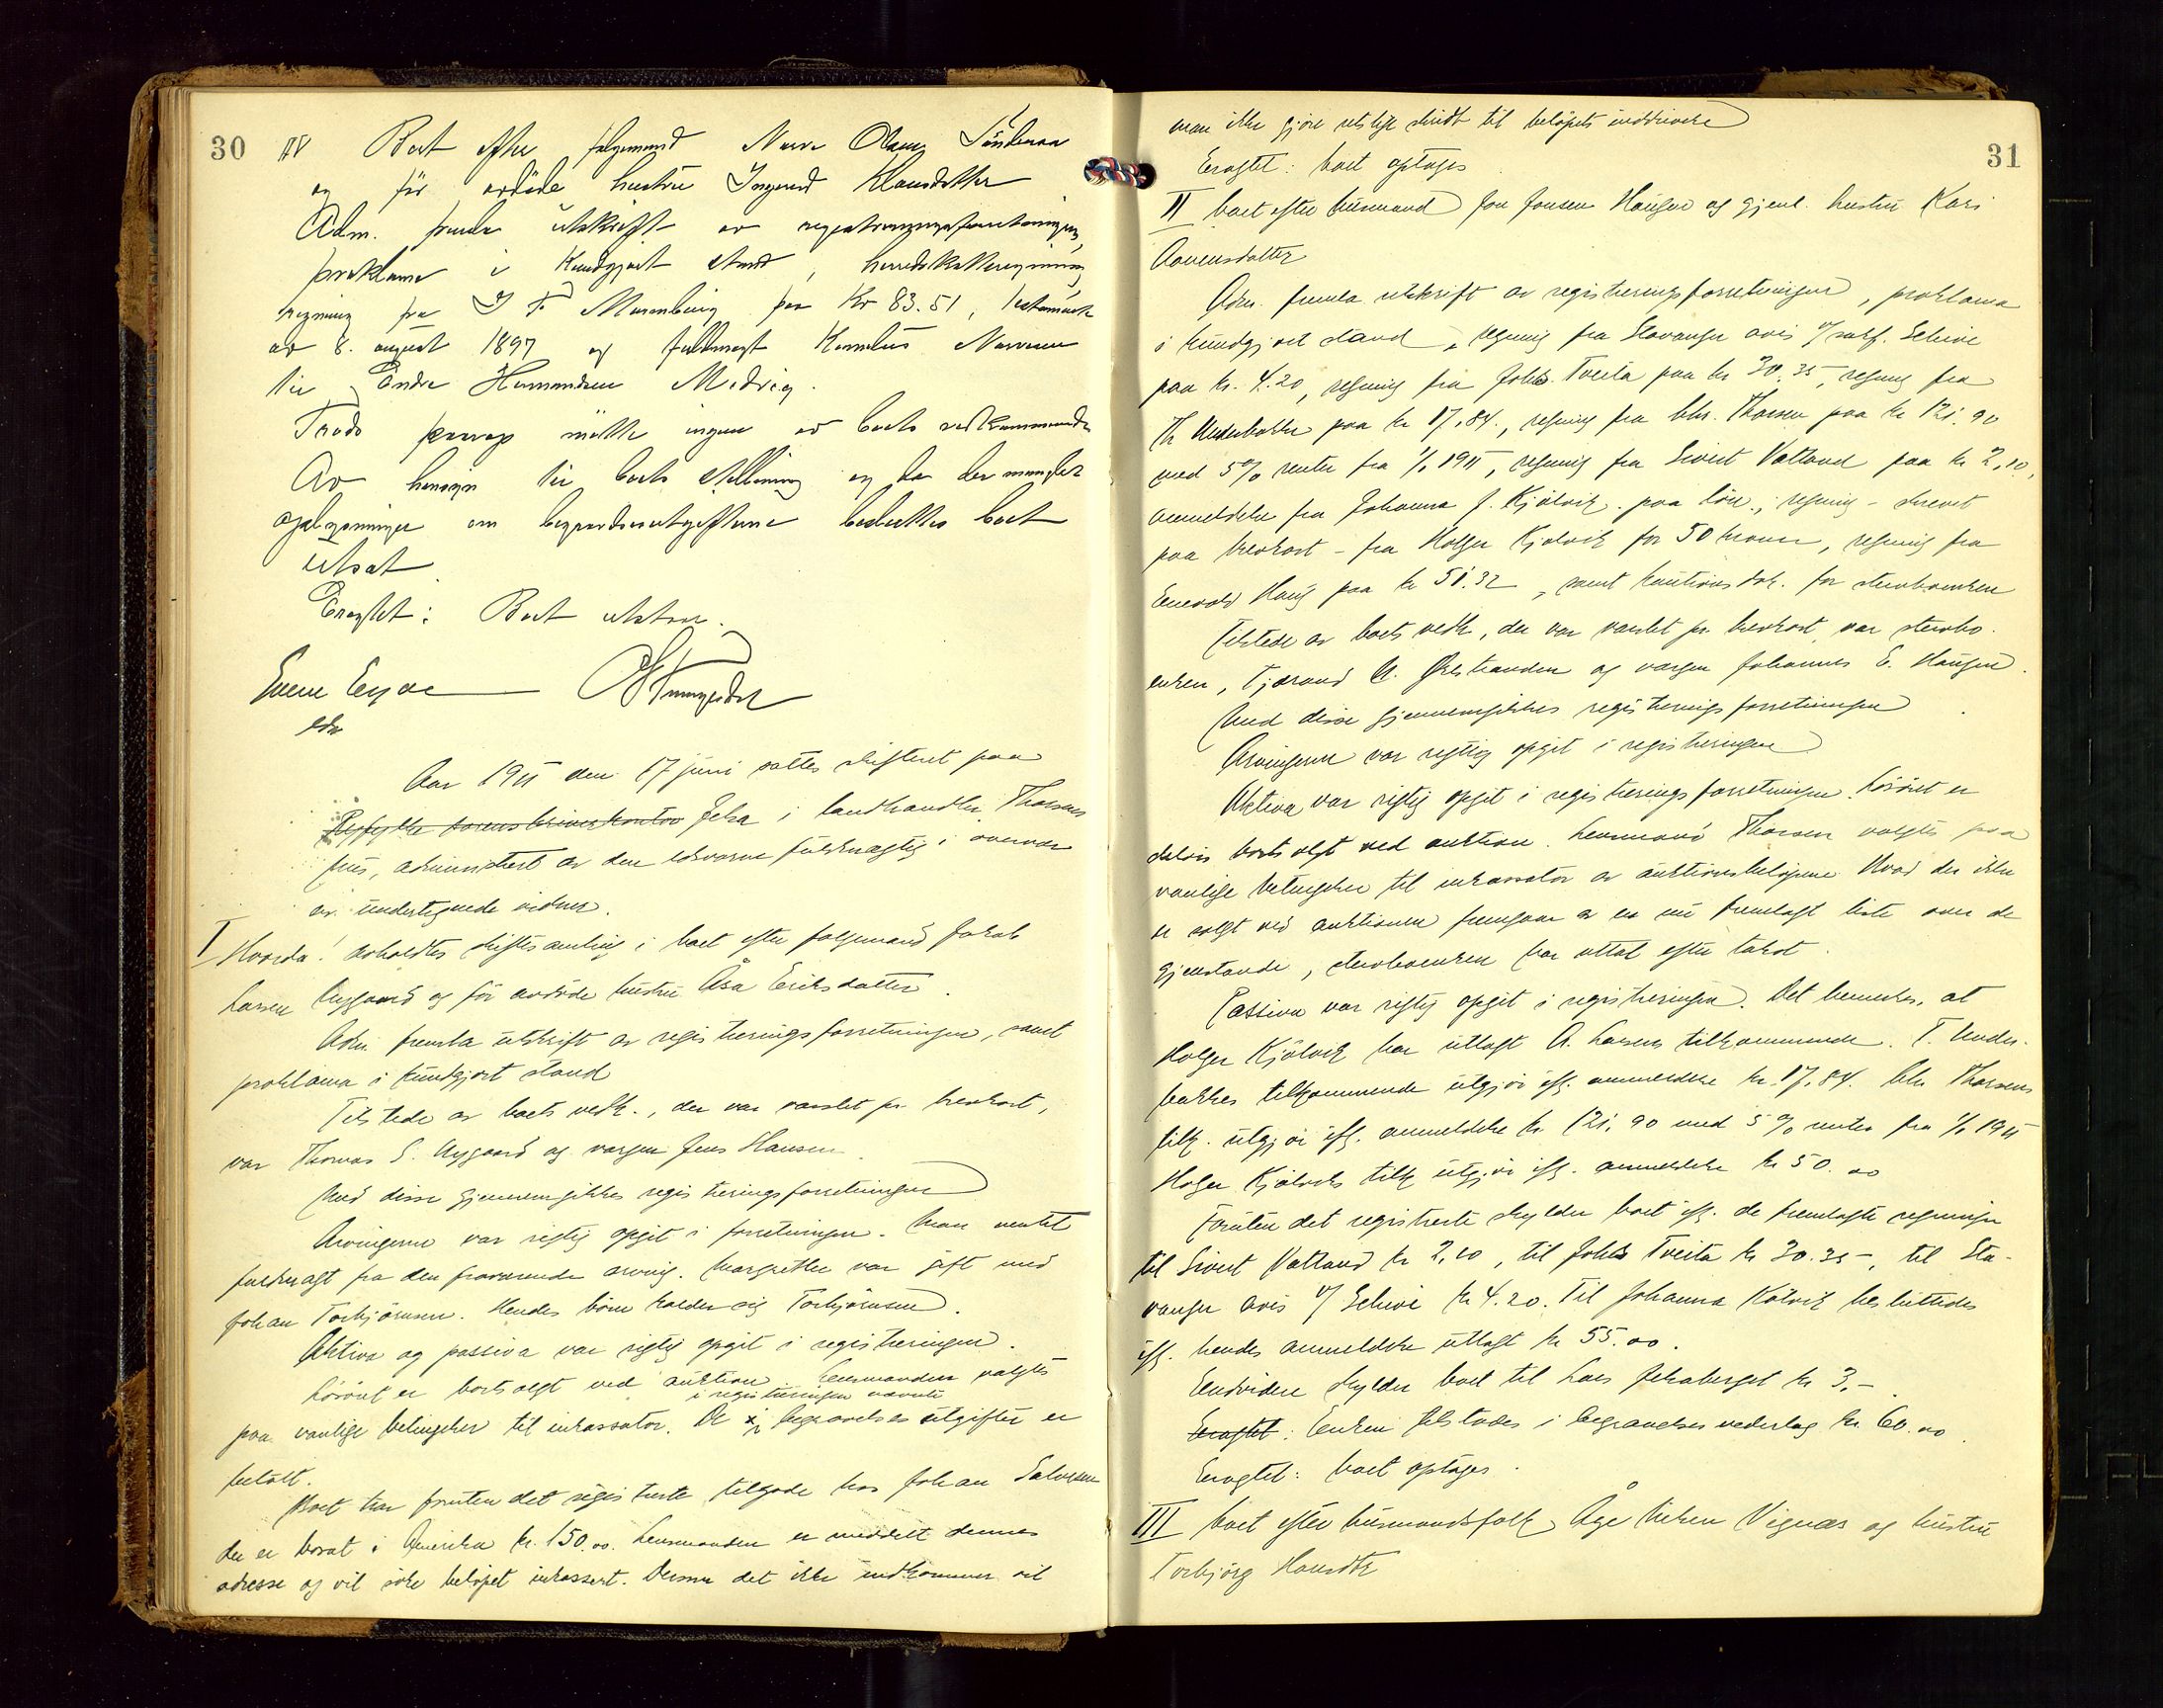 30
IV Boet efter folgemand Narve Olsen Sønbenaa
og før avdøde hustru Ingerid Klausdatter
Adm. fremla utskrift av registreringsforretningen,
proklama i kundgjort stand, herredskasseregning
regning fra I F Marenburg paa Kr 83.51, testament
av 8. august 1897 og fuldmagt Kornelius Narvesen
til Endre Hermundsen Medvig.
Trods paarop møtte ingen av boets vedkommende
Av hensyn til boets stilling og da der mangler
oplysninger om begravelsesutgifterne besluttes boet
utsat.
Eragtet: Boet utstaar.
edsv
Aar 1911 den 17 juni sattes skifteret paa
Ryfylke sorenskriverkontor Jelsa i landhandler Thorsens
hus, administrert av den edsvorne fuldmægtig i overvær
av undertegnede vidner.
I Hvorda! avholdtes skiftesamling i boet efter folgemand Jakob
Larsen Nygaard og før avdøde hustru Åsa Eriksdatter.
Adm. fremla utskrift av registreringsforretningen, samt
proklama i kundgjort stand
Tilstede av boets vedk., der var varslet pr. brevkort,
var Thomas S. Nygaard og vergen Jens Hansen.
Med disse gjennemgikkes registreringsforretningen
Arvingerne var rigtig opgit i forretningen. Man ventet
fuldmagt fra den fraværende arving. Margrethe var gift med
Johan Torbjørnsen. Hendes børn kalder sig Torbjørnsen.
Aktiva og passiva var rigtig opgit i registreringen.
Løsøret er bortsolgt ved auktion. Lensmanden valgtes
paa vanlige betingelser til inkassator. De i registreringen nævnte begravelsesutgifter er
betalt.
Boet har foruten det registrerte tilgode hos Johan Salvesen
der er bosat i Amerika kr. 150.00. Lensmanden er meddelt dennes
adresse og vil søke beløpet inkassert. Dersom det ikke indkommer vil
31
man ikke gjøre retslige skridt til beløpets inddrivelse
Eragtet: boet optages
II boet efter husmand Jon Jonsen Haugen og gjenl. hustru Kari
Aanensdatter
Adm. fremla utskrift av registreringsforretningen, proklama
i kundgjort stand, regning fra Stavanger avis v/ sakf. Scheie
paa kr. 4.20, regning fra Johs. Tveita paa kr 30.35, regning fra
Th Underbakke paa kr 17.84., regning fra lhr. Thorsen paa kr 121.90
med 5% renter fra 1/1 1911, regning fra Sivert Vatland paa kr 2,10,
anmeldelse fra Johanna J. Kjølvik paa løn, regning - skrevet
paa brevkort - fra Holger Kjølvik for 50 kroner, regning fra
Enevold Haug paa kr 51.32, samt kautionsdok. for sterboenken
Tilstede av boets vedk, der var varslet pr. brevkort var sterbo-
enken, Tjerand A. Ørestranden og vergen Johannes E. Haugen.
Med disse gjennemgikkes registreringsforretningen
Arvingerne var rigtig opgit i registreringen
Aktiva var rigtig opgit i registreringsforretningen. Løsøret er
delvis bortsolgt ved auktion. Lensmand Thorsen valgtes paa
vanlige betingelser til inkassator av auktionsbeløpene Hvad der ikke
er solgt ved auktionen fremgaar av en nu fremlagt liste over de
gjenstande, sterboenken har uttat efter takst.
Passiva var rigtig opgit i registreringen. Det bemerkes, at
Holger Kjølvik har utlagt A. Larsens tilkommende. T. Under-
bakkes tilkommende utgjør iflg. anmeldelse kr. 17,84. lhr. Thorsens
tilk. utgjør iflg. anmeldelse kr. 121,90 med 5% renter fra 1/1 1911
Holger Kjølviks tilk utgjør iflg. anmeldelse kr 50.00
Foruten det registrerte skylder boet iflg. de fremlagte regninger
til Sivert Vatland kr 2,10, til Johs Tveita kr 30.35-, til Sta-
vanger avis v/ Scheie kr 4.20. Til Johanna Kølvik besluttedes
iflg. hendes anmeldelse utlagt kr 55.00.
Endvidere skylder boet til Lars Jelsaberget kr 3,-.
Eragtet: Enken tilstodes i begravelsesvederlag kr. 60.00.
Eragtet: boet optages.
III boet efter husmandsfolk Åge Vignæs og hustru
Torbjørg Hansdtr